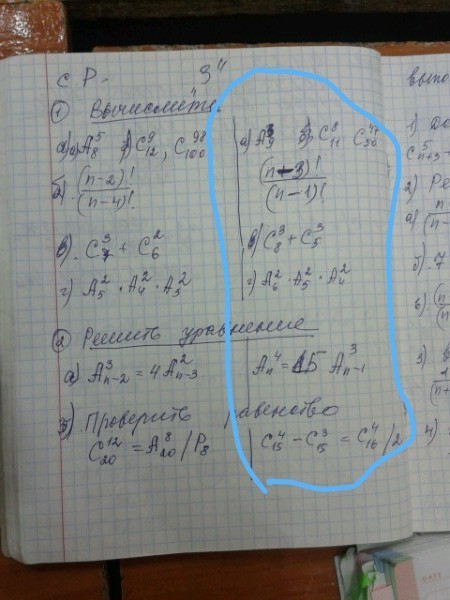 С Р- 9"
① Вычислить
а) A₈⁵ б) C₁₂⁹, C₁₀₀⁹⁸ | а) A₉³ б) C₁₁⁸ C₅₀⁴⁷
б. (n-2)! / (n-4)! | (n-3)! / (n-1)!
в). C₇³ + C₆² | в) C₈³ + C₅³
г) A₅² · A₄² · A₃² | г) A₆² · A₅² · A₄²
② Решить уравнение
а) A³ₙ₋₂ = 4A²ₙ₋₃ | Aₙ⁴ = 15 A³ₙ₋₁
3) Проверить равенство
C₂₀¹² = A₂₀⁸ / P₈ | C₁₅⁴ - C₁₅³ = C₁₆⁴ / 2
1)
C⁵ₙ₊₃
2) Ре
а)
б). 7
в)
3)
4)